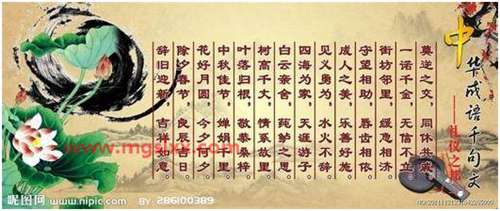 中华成语千句文
——礼仪之邦
莫逆之交，同休共戚。
一诺千金，无信不立。
街坊邻里，缓急可济。
守望相助，唇齿相依。
成人之美，乐善好施。
见义勇为，水火不辞。
四海为家，天涯游子。
白云亲舍，莼鲈之思。
树高千丈，情系故里。
叶落归根，敬恭桑梓。
中秋佳节，婵娟里。
花好月圆，今夕何夕。
除夕春节，良辰吉日。
辞旧迎新，吉祥如意。
www.mgslxx.com
昵图网
www.nipic.com BY: 286100389